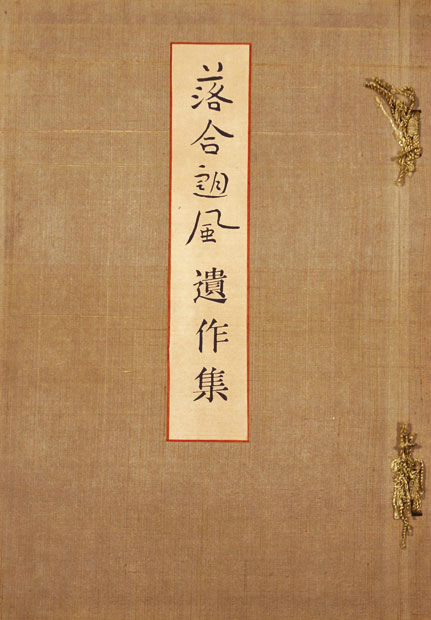 落合朗風 遺作集